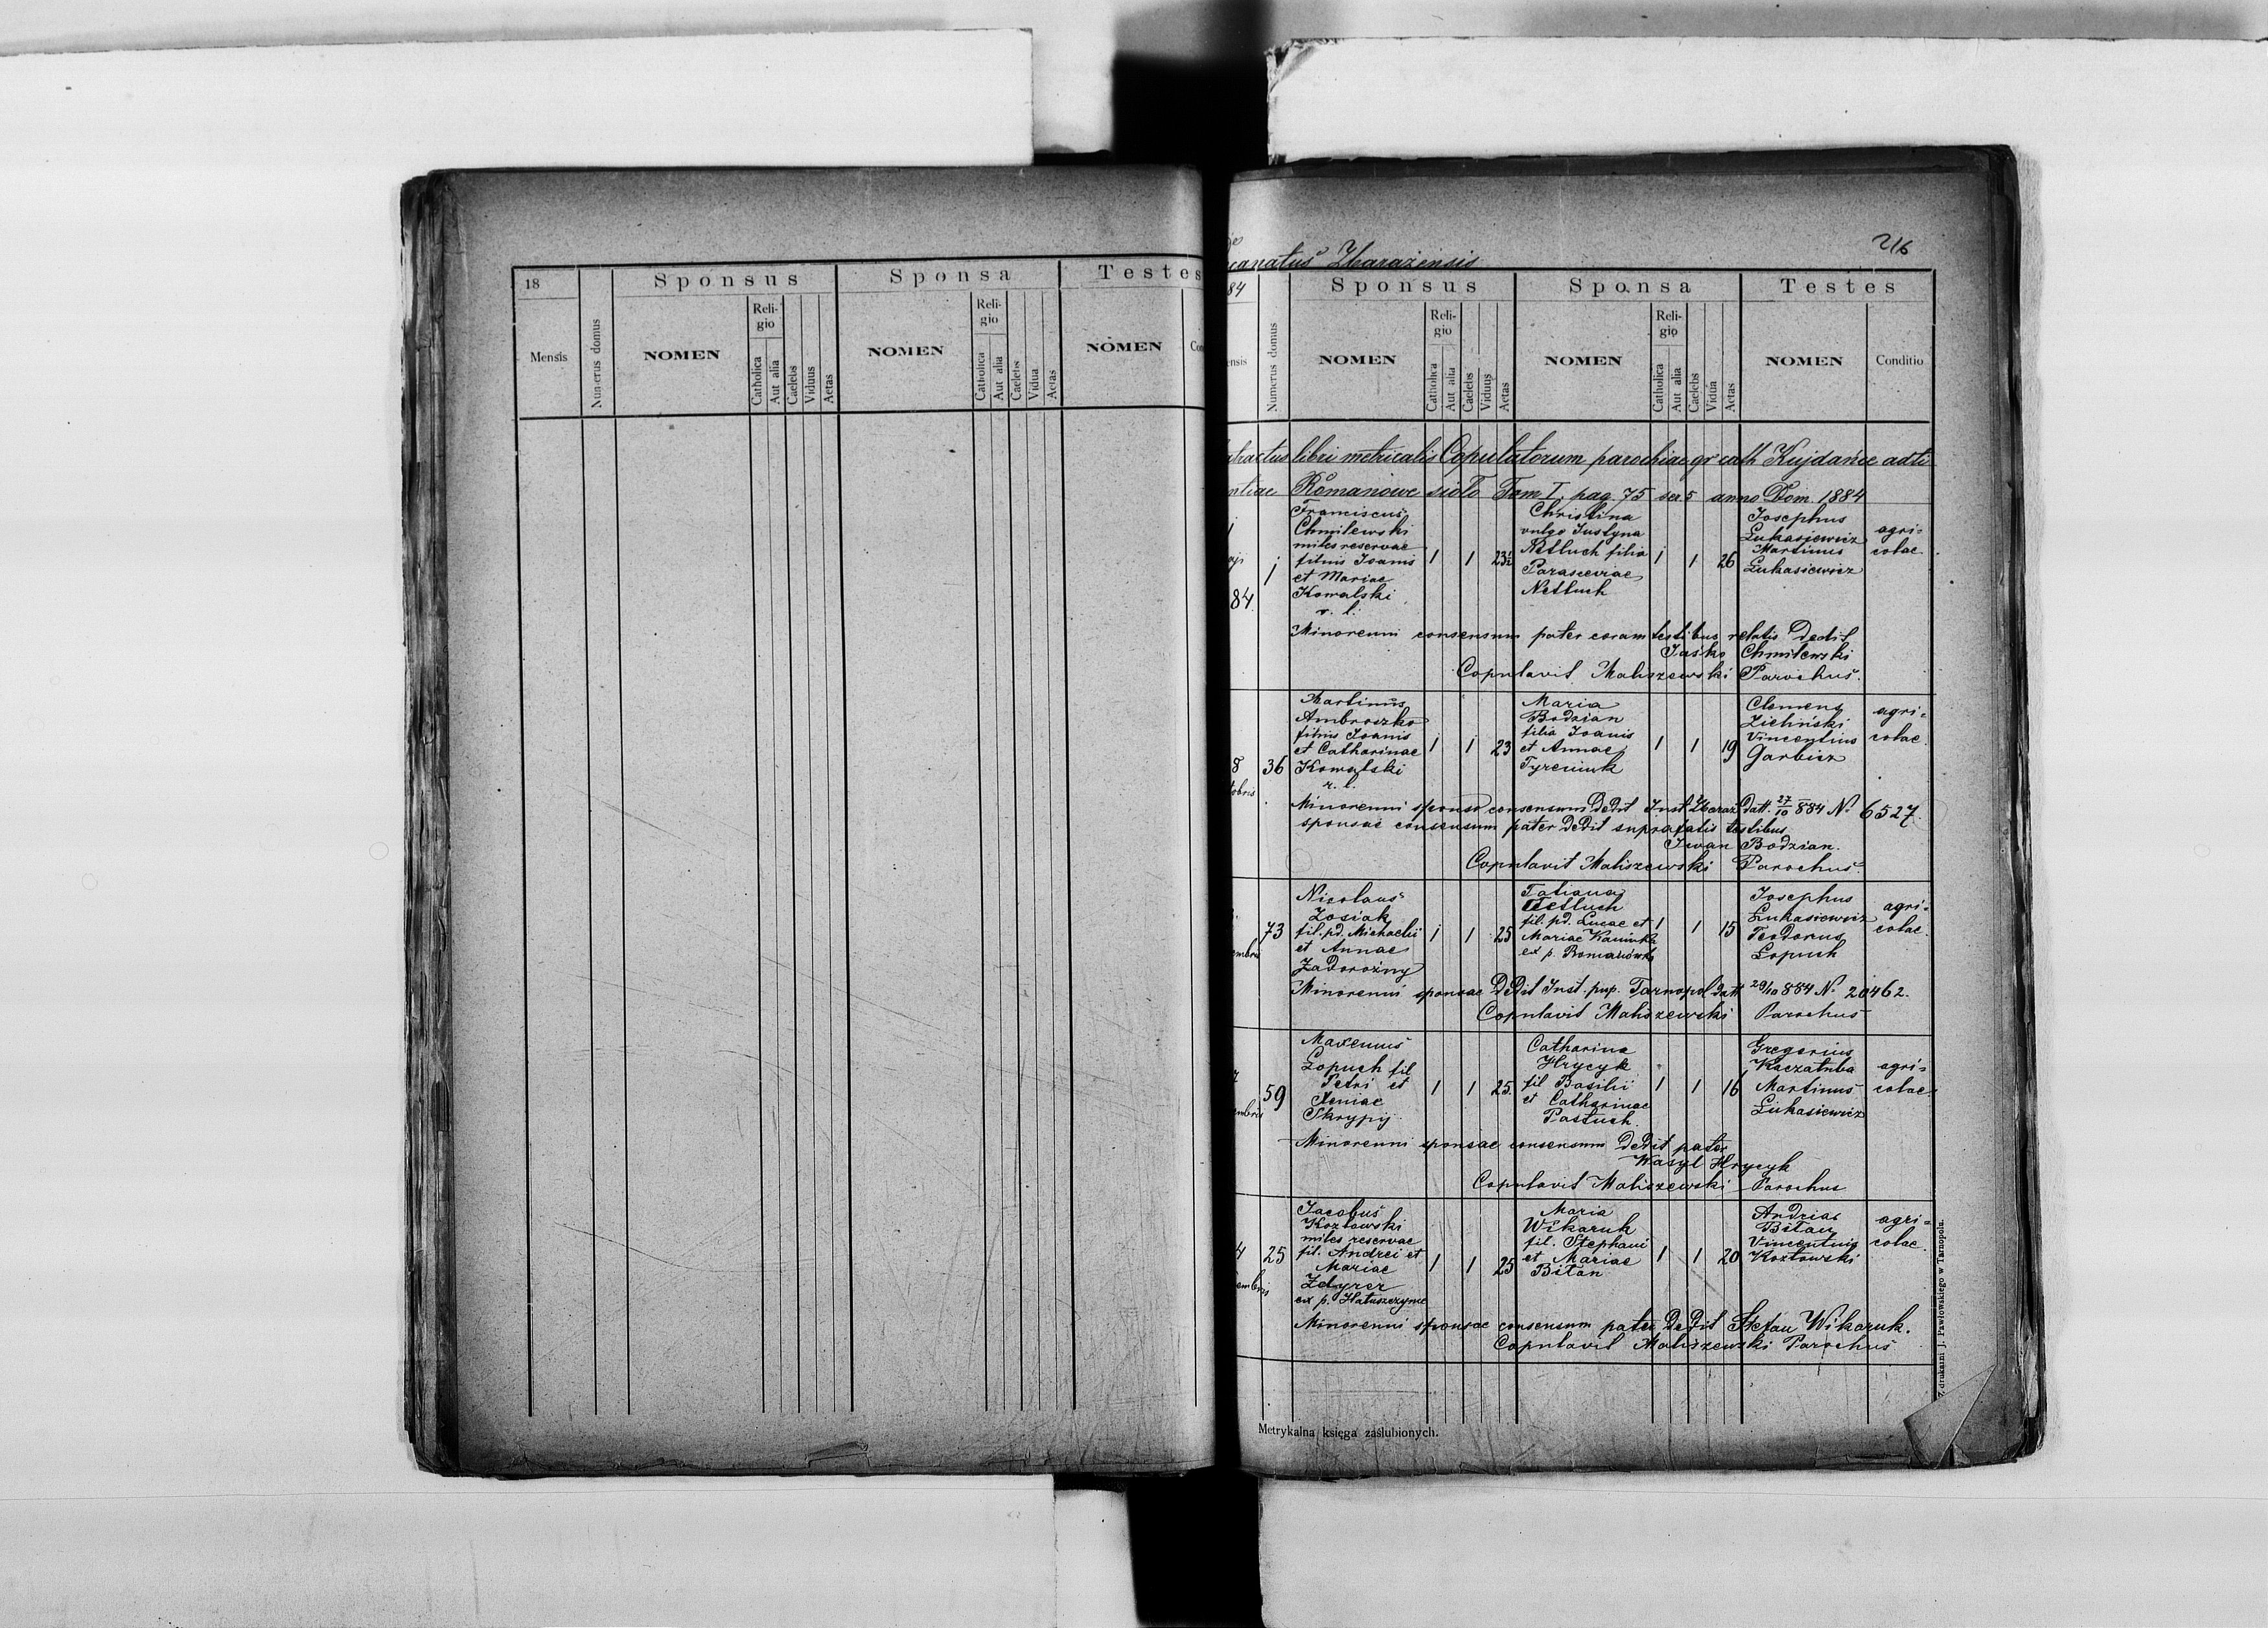 18
Sponsus
Sponsa
Testes
Mensis
Numerus domus
NOMEN
Religio
Catholica
Aut alia
Caelebs
Viduus
Aetas
NOMEN
Religio
Catholica
Aut alia
Caelebs
Vidua
Aetas
NOMEN
216
Zbarażensis
84
Sponsus
Sponsa
Testes
Numerus domus
NOMEN
Religio
Catholica
Aut alia
Caelebs
Viduus
Aetas
NOMEN
Religio
Catholica
Aut alia
Caelebs
Vidua
Aetas
NOMEN
Conditio
libri metricalis Copulatorum parochiae gr cath Kujdańce adti
Romanowe sioło Tom I. pag. 75 ser. 5 anno Dom. 1884
84
1
Franciscus
Chmilewski
miles reservae
filius Ioanis
et Mariae
Kowalski
r. l.
1 1 23½
Christina
vulgo Justyna
Netluch filia
Parasceviae
Netluch
1 1 26
Josephus
Łukasiewicz
Martinus
Łukasiewicz
agri-
colae
Minorenni consensum pater coram testibus relatis dedit
Jaśko Chmilewski
Copulavit Maliszewski Parochus.
8
36
Martinus
Ambroszko
filius Ioanis
et Catharinae
Kowalski
r. l.
1 1 23
Maria
Bodzian
filia Ioanis
et Annae
Tyreniuk
1 1 19
Clemens
Zieliński
Vincentius
Garbicz
agri-
colae
Minorenni sponso consensum dedit Inst. Zbaraz datt. 27/10 884 N. 6527.
sponsae consensum pater dedit suprafatis testibus
Iwan Bodzian.
Copulavit Maliszewski Parochus.
73
Nicolaus
Zosiak
fil. pd. Michaelis
et Annae
Zadorożny
1 1 25
Tatiana
Tetluch
fil. pd. Lucae et
Mariae
ex p.
1 1 15
Josephus
Łukasiewicz
Teodorus
Łopuch
agri-
colae
Minorenni sponsae dedit Inst. pup. Tarnopol datt 29/10 884 N. 20462.
Copulavit Maliszewski Parochus
59
Maxemus
Łopuch fil
Petri et
Xeniae
Skrypij
1 1 25.
Catharina
Hrycyk
fil Basilii
et Catharinae
Pastuch.
1 1 16
Gregorius
Kaczałuba
Martinus
Łukasiewicz
agri-
colae
Minorenni sponsae consensum dedit pater
Wasyl Hrycyk
Copulavit Maliszewski Parochus
4
25
Jacobus
Kozłowski
miles reservae
fil. Andrei et
Mariae
Zdyrer
ex p. Hałuszczyńce
1 1 25
Maria
Wikaruk
fil. Stephani
et Mariae
Biłan
1 1 20
Andreas
Biłan
Vincentius
Kozłowski
agri-
colae
Minorenni sponsae consensum pater dedit Stefan Wikaruk.
Copulavit Maliszewski Parochus
Metrykalna księga zaślubionych.
Z drukarni J. Pawłowskiego w Tarnopolu.